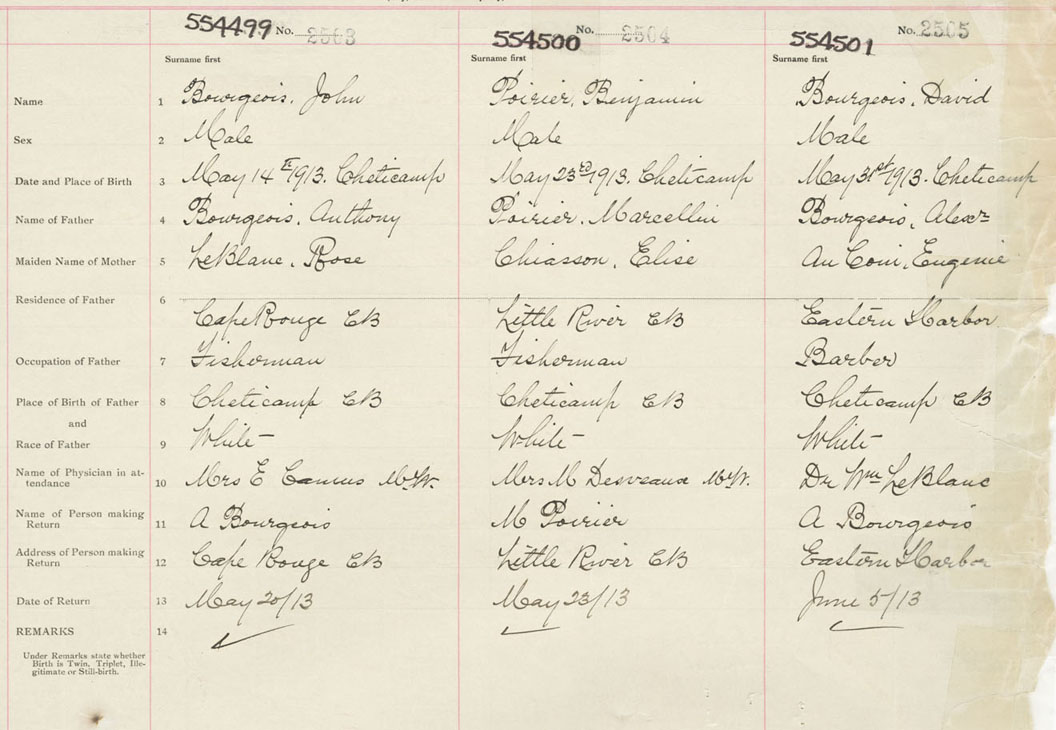 554499 No. 2503 554500 No. 2504 554501 No. 2505
Surname first Surname first Surname first
Name 1 Bourgeois, John Poirier, Benjamin Bourgeois, David
Sex 2 Male Male Male
Date and Place of Birth 3 May 14th 1913. Cheticamp May 23rd 1913. Cheticamp May 31st 1913. Cheticamp
Name of Father 4 Bourgeois, Anthony Poirier, Marcellin Bourgeois, Alexr
Maiden Name of Mother 5 LeBlanc, Rose Chiasson, Elise AuCoin, Eugenie
Residence of Father 6 Cape Rouge CB Little River CB Eastern Harbor
Occupation of Father 7 Fisherman Fisherman Barber
Place of Birth of Father 8 Cheticamp CB Cheticamp CB Cheticamp CB
and
Race of Father 9 White White White
Name of Physician in at-
tendance 10 Mrs E Camus M.W. Mrs M Desveaux M.W. Dr Wm LeBlanc
Name of Person making
Return 11 A Bourgeois M Poirier A Bourgeois
Address of Person making
Return 12 Cape Rouge CB Little River CB Eastern Harbor
Date of Return 13 May 20/13 May 23/13 June 5/13
REMARKS 14
Under Remarks state whether
Birth is Twin, Triplet, Ille-
gitimate or Still-birth.